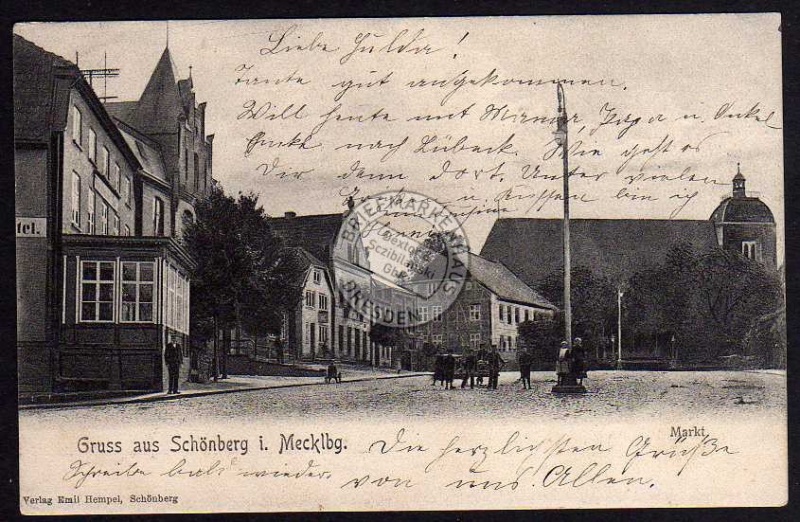 Liebe Hulda!
Tante gut angekommen.
Will heute mit Mama, Papa u. Onkel
nach Lübeck. Wie geht es
Dir denn dort. Unter vielen
u Küssen bin ich
tel.
BRIEFMARKENHAUS
Sextor &
Sczibilanski
GbR
DRESDEN
Markt.
Gruss aus Schönberg i. Mecklbg.
Die herzlichsten Grüße
Schreibe bald wieder.
von uns Allen.
Verlag Emil Hempel, Schönberg